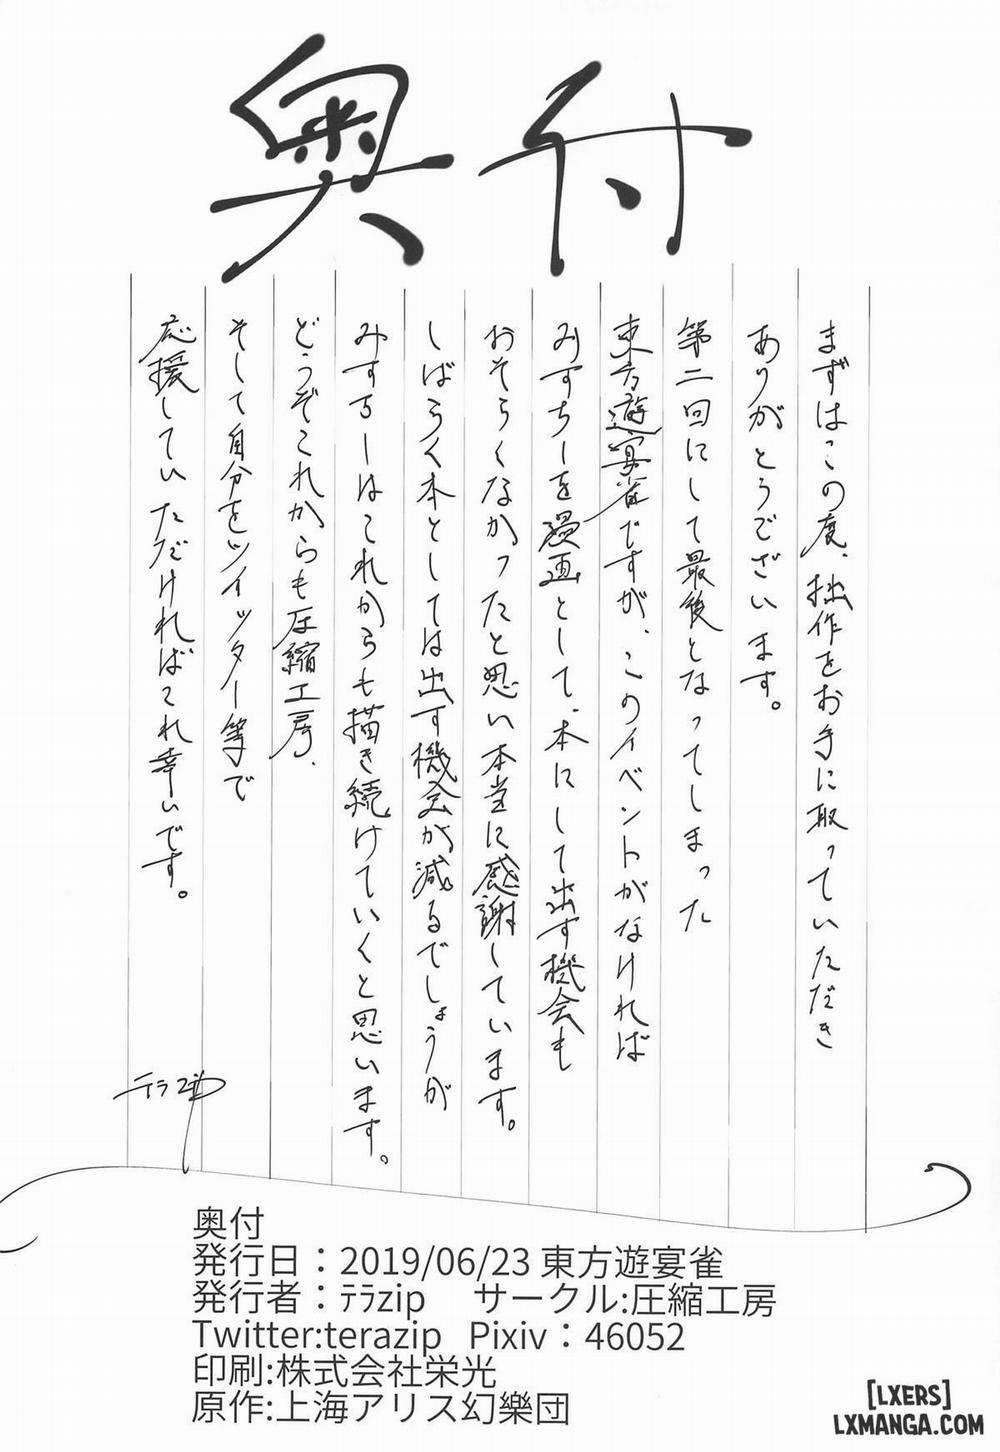 奥付
まずはこの度、拙作をお手に取っていただき
ありがとうございます。
第二回にして最後となってしまった
東方遊宴雀ですが、このイベントがなければ
みすちーを漫画として、本にして出す機会も
おそらくなかったと思い本当に感謝しています。
しばらく本としては出す機会が減るでしょうが
みすちーはこれからも描き続けていくと思います。
どうぞこれからも圧縮工房、
そして自分をツイッター等で
応援していただければこれ幸いです。
テラzip
奥付
発行日：2019/06/23 東方遊宴雀
発行者：ﾃﾗzip サークル:圧縮工房
Twitter:terazip Pixiv：46052
印刷:株式会社栄光
原作:上海アリス幻樂団
[LXERS]
LXMANGA.COM